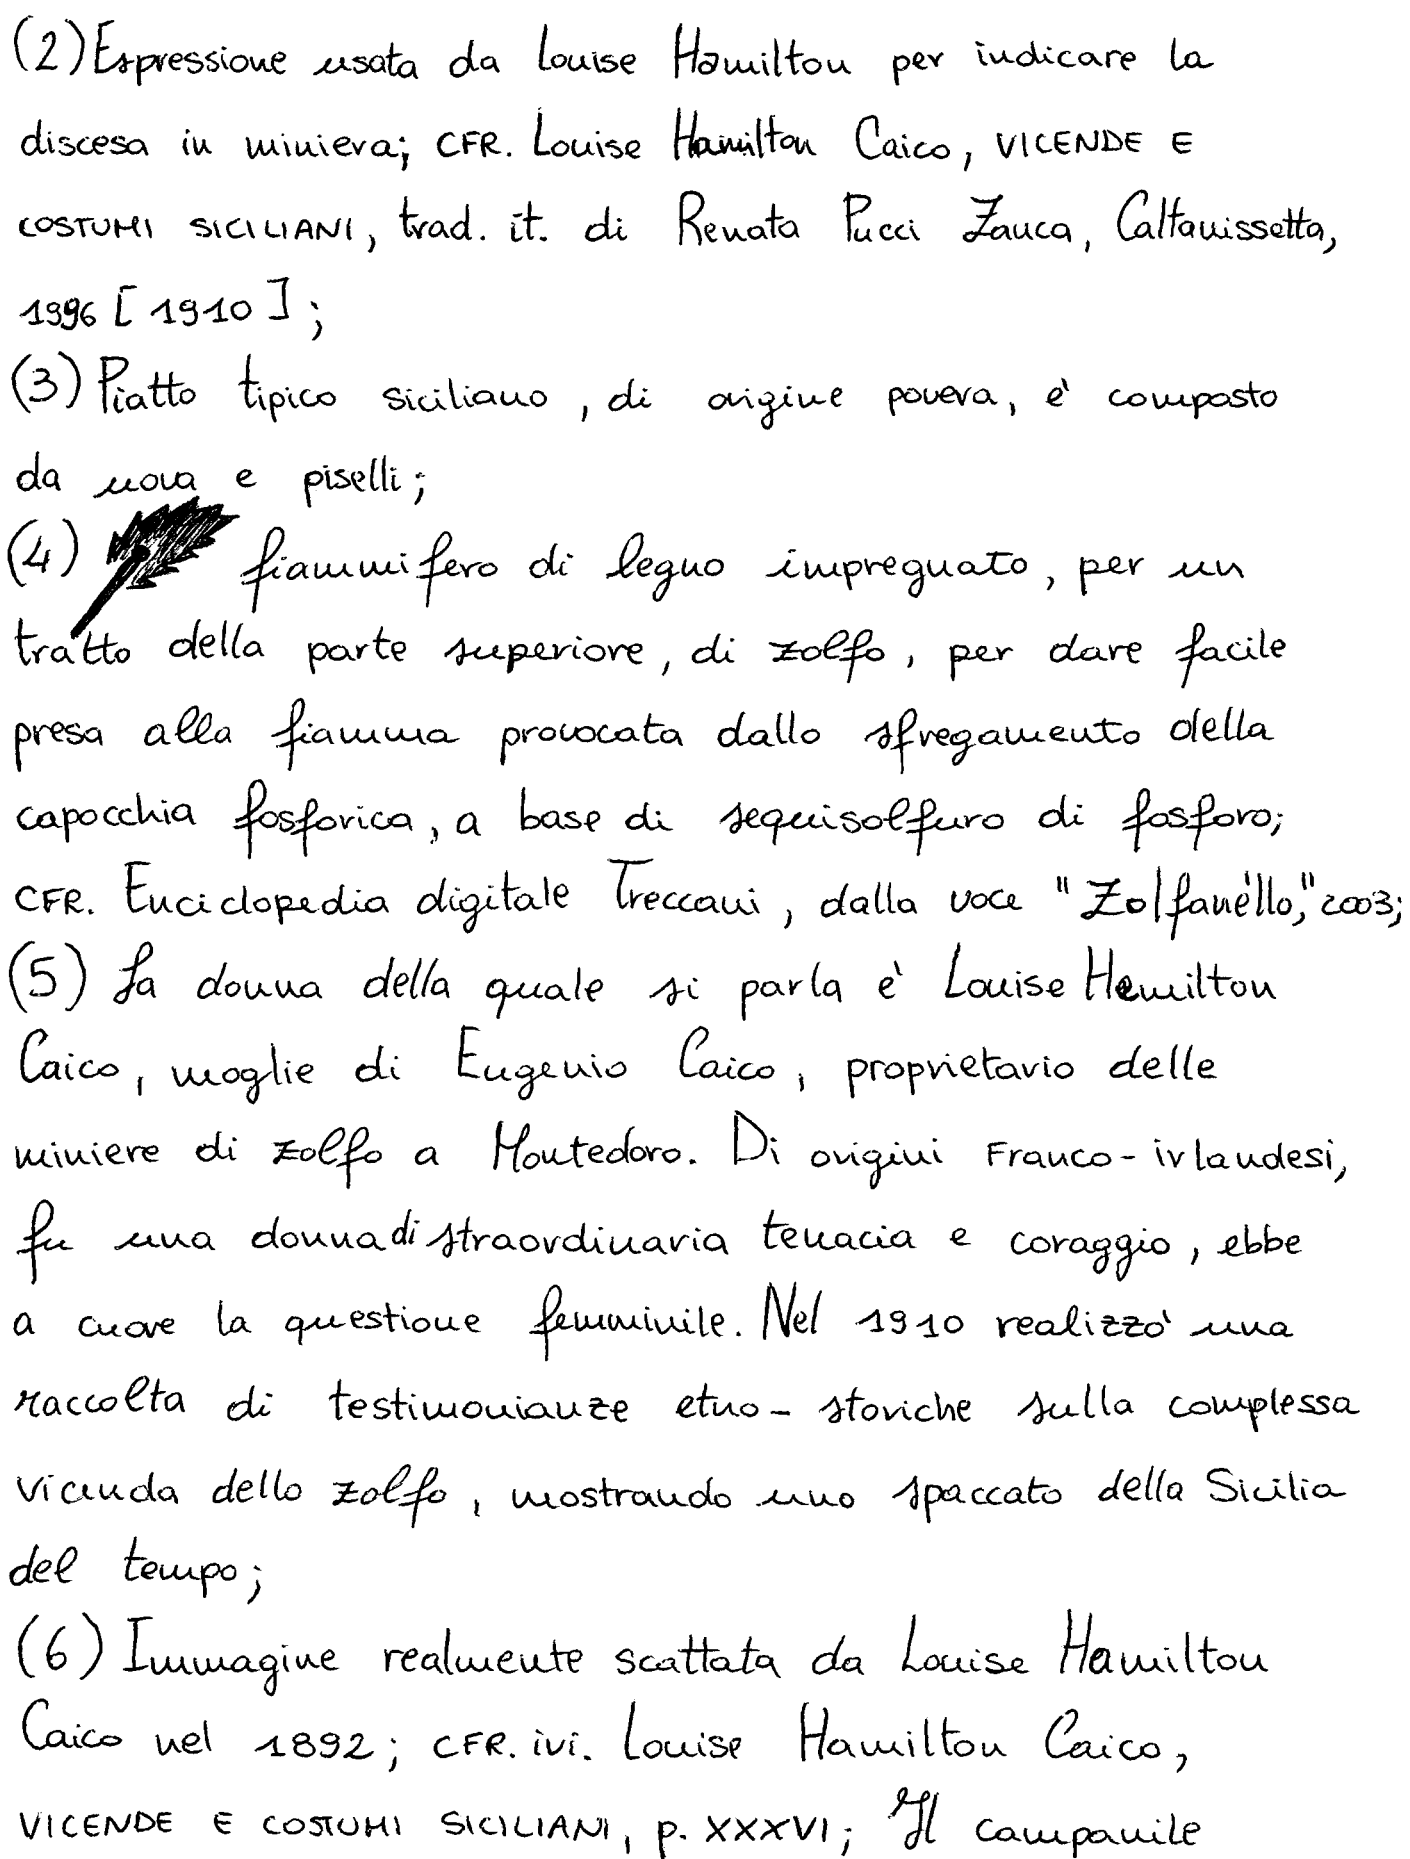 (2) Espressione usata da Louise Hamilton per indicare la
discesa in miniera; CFR. Louise Hamilton Caico, VICENDE E
COSTUMI SICILIANI, trad. it. di Renata Pucci Zanca, Caltanissetta,
1996 [1910];
(3) Piatto tipico siciliano, di origine povera, è composto
da uova e piselli;
(4) fiammifero di legno impregnato, per un
tratto della parte superiore, di zolfo, per dare facile
presa alla fiamma provocata dallo sfregamento della
capocchia fosforica, a base di sequisolfuro di fosforo;
CFR. Enciclopedia digitale Treccani, dalla voce "Zolfanèllo," 2003;
(5) La donna della quale si parla è Louise Hamilton
Caico, moglie di Eugenio Caico, proprietario delle
miniere di zolfo a Montedoro. Di origini Franco-irlandesi,
fu una donna di straordinaria tenacia e coraggio, ebbe
a cuore la questione femminile. Nel 1910 realizzò una
raccolta di testimonianze etno-storiche sulla complessa
vicenda dello zolfo, mostrando uno spaccato della Sicilia
del tempo;
(6) Immagine realmente scattata da Louise Hamilton
Caico nel 1892; CFR. ivi. Louise Hamilton Caico,
VICENDE E COSTUMI SICILIANI, p. XXXVI; Il campanile